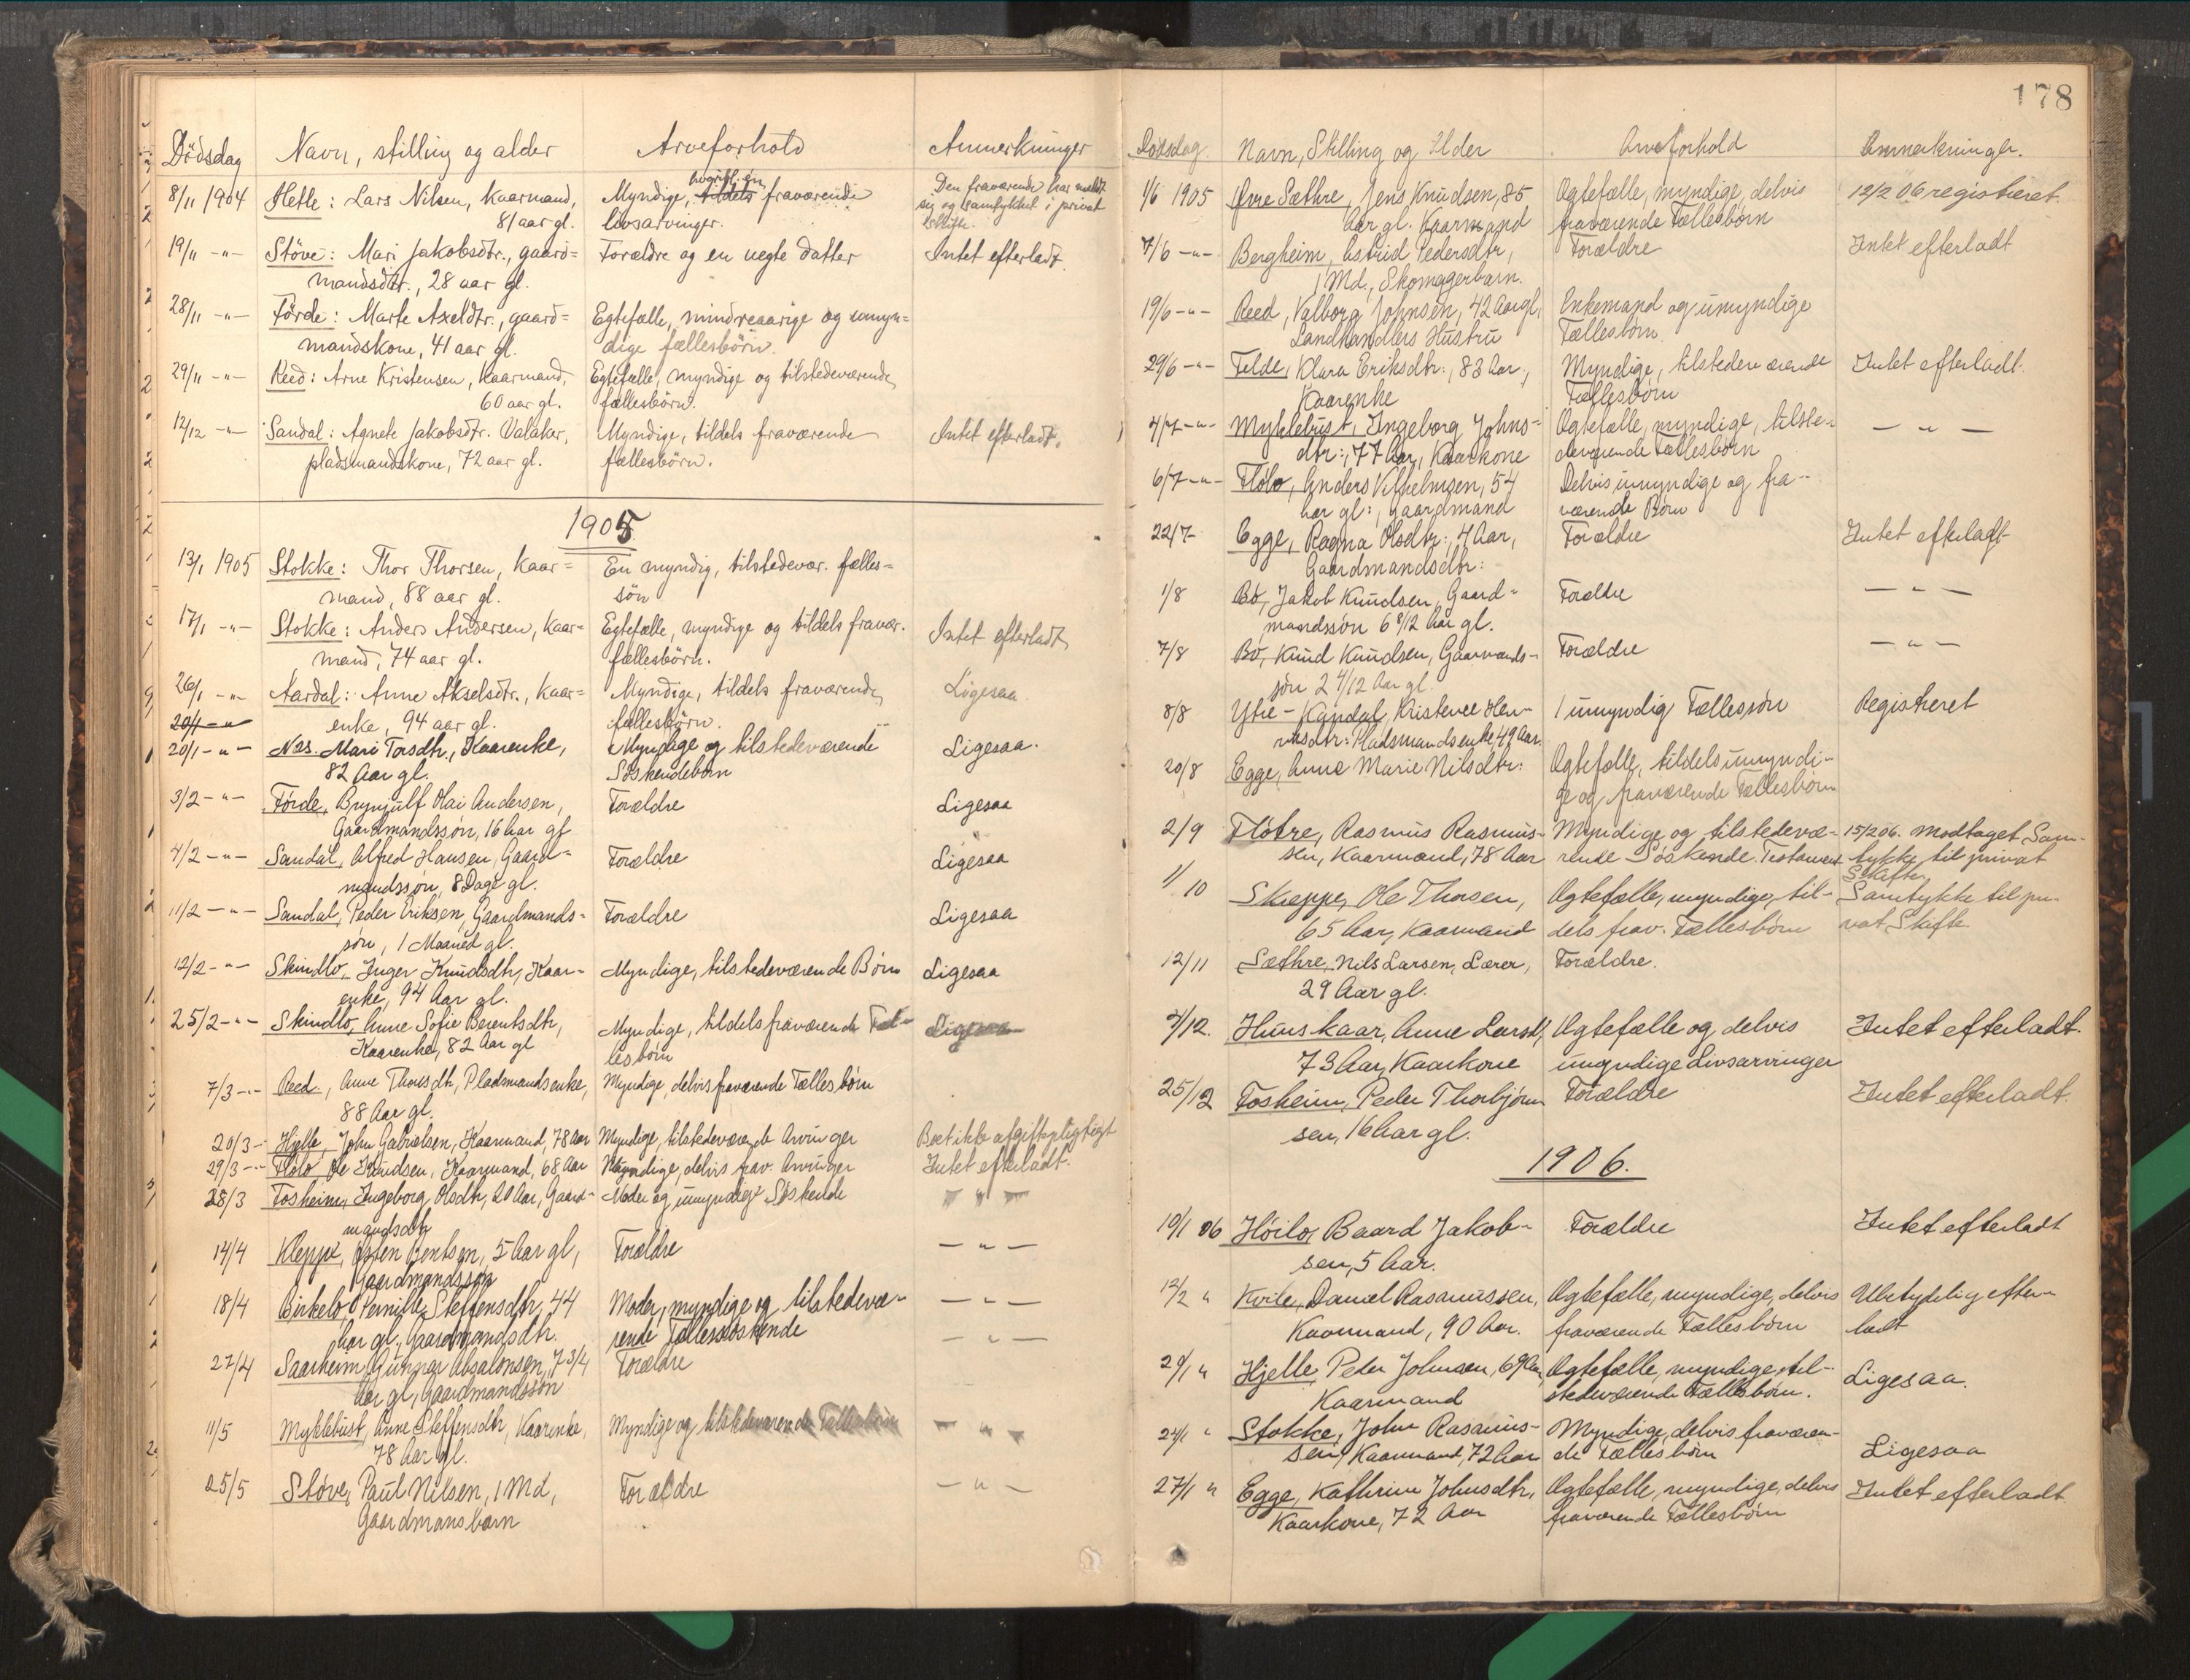 Dödsdag Navn, stilling og alder Arveforhold Anmerkninger
8/11 1904 Hetle: Lars Nilsen, kaarmand, Myndige, hvoribl. en tildels fraværende Den fraværende har meldt
81 aar gl. livsarvinger. sig og samtykket i privat
skifte.
19/11 -"- Støve: Mari Jakobsdtr., gaard= Forældre og en uegte datter Intet efterladt.
mandsdtr., 28 aar gl.
28/11 -"- Førde: Marte Axeldtr., gaard= Egtefælle, mindreaarige og umyn=
mandskone, 41 aar gl. dige fællesbörn.
29/11 -"- Reed: Arne Kristensen, kaarmand, Egtefælle, myndige og tilstedeværende
60 aar gl. fællesbörn.
12/12 -"- Sandal: Agnete Jakobsdtr. Valaker, Myndige, tildels fraværende Intet efterladt.
pladsmandskone, 72 aar gl. fællesbörn.
1905
13/1 1905 Stokke: Thor Thorsen, kaar= En myndig, tilstedevær. fælles=
mand, 88 aar gl. sön
17/1 -"- Stokke: Anders Andersen, kaar= Egtefælle, myndige og tildels fravær. Intet efterladt
mand, 74 aar gl. fællesbörn.
26/1 -"- Aardal: Anne Akselsdtr., kaar= Myndige, tildels fraværende Ligesaa
20/1 -"- enke, 94 aar gl. fællesbörn.
20/1 -"- Nes. Mari Torsdtr., Kaarenke, Myndige og tilstedeværende Ligesaa.
82 Aar gl. Søskendebørn
3/2 -"- Førde, Brynjulf Olai Andersen, Forældre Ligesaa
Gaardmandssøn, 16 Aar gl
4/2 -"- Sandal, Alfred Hansen, Gaard- Forældre Ligesaa
mandssøn, 8 Dage gl.
11/2 -"- Sandal, Peder Eriksen, Gaardmands- Forældre Ligesaa
søn, 1 Maaned gl.
12/2 -"- Skindlo, Inger Knudsdtr, Kaar- Myndige, tilstedeværende Børn Ligesaa
enke, 94 Aar gl.
25/2 -"- Skindlo, Anne Sofie Berentsdtr, Myndige, tildels fraværende Fæl- Ligesaa
Kaarenke, 82 Aar gl lesbørn
7/3 -"- Reed, Anne Thorsdtr, Pladsmandsenke, Myndige, delvis fraværende Fællesbørn
88 Aar gl.
20/3 - Hjelle, John Gabrielsen, Kaarmand, 78 Aar Myndige, tilstedeværende Arvinger Boet ikke afgiftspligtigt
29/3 -"- Fløto Ole Knudsen, Kaarmand, 68 Aar Myndige, delvis frav. Arvinger Intet efterladt.
28/3 Fosheim, Ingeborg Olsdtr, 20 Aar, Gaard- Moder og umyndige Søskende - " -
mandsdtr
14/4 Kleppe, Bentsen, 5 Aar gl, Forældre - " -
Gaardmandssøn
18/4 Birkelo Pernille Steffensdtr, 44 Moder, myndige og tilstedevæ- - " -
Aar gl., Gaardmandsdtr. rende Fællessøskende
27/4 Saarheim, Gunnar Absalonsen, 7 3/4 Forældre - " -
Aar gl, Gaardmandssøn
11/5 Myklebust, Anne Steffensdtr, Kaarenke, Myndige og tilstedeværende Fællesbørn - " -
78 Aar gl.
25/5 Støve, Paul Nilsen, 1 Md, Forældre - " -
Gaardmansbarn
178
Dødsdag. Navn, Stilling og Alder Arveforhold Anmerkninger.
1/6 1905 Øvre Sæthre, Jens Knudsen, 85 Ægtefælle, myndige, delvis 12/2 06 registreret.
Aar gl. Kaarmand fraværende Fællesbørn
7/6 -"- Bergheim, Astrid Pedersdtr, Forældre Intet efterladt
1 Md., Skomagerbarn.
19/6 -"- Reed, Valborg Johnsen, 42 Aar gl, Enkemand og umyndige
Landhandlers Hustru Fællesbørn.
29/6 -"- Felde, Klara Eriksdtr:, 83 Aar, Myndige, tilstedeværende Intet efterladt.
Kaarenke Fællesbørn
4/7 -"- Myklebust, Ingeborg Johns- Ægtefælle, myndige, tilste- - " -
dtr:, 77 Aar, Kaarkone deværende Fællesbørn
6/7 -"- Fløto, Anders Vilhelmsen, 54 Delvis umyndige og fra-
Aar gl:, Gaardmand værende Børn
22/7 Egge, Ragna Olsdtr:, 4 Aar, Forældre Intet efterladt
Gaardmandsdtr:
1/8 Bø, Jakob Knudsen, Gaard- Forældre - " -
mandssøn 6 8/12 Aar gl.
7/8 Bø, Knud Knudsen, Gaarmands- Forældre - " -
søn 2 4/12 Aar gl.
8/8 Ytre-Kandal, Kristense Hen- 1 umyndig Fællessøn Registreret
riksdtr: Pladsmandsenke, 49 Aar.
20/8 Egge, Anne Marie Nilsdtr: Ægtefælle, tildels umyndi-
ge og fraværende Fællesbørn
2/9 Fløtre, Rasmus Rasmus- Myndige og tilstedevæ- 15/2 06. modtaget Sam-
sen, Kaarmand, 78 Aar rende Søskende. Testament tykke til privat
Skifte
1/10 Skreppe, Ole Thorsen, Ægtefælle, myndige, til- Samtykke til pri-
65 Aar, Kaarmand dels frav. Fællesbørn vat Skifte
12/11 Sæthre, Nils Larsen, Lærer, Forældre.
29 Aar gl.
2/12. Huuskaar, Anne Larsd, Ægtefælle og delvis Intet efterladt.
73 Aar, Kaarkone umyndige Livsarvinger
25/12 Fosheim, Peder Thorbjørn Forældre Intet efterladt.
sen, 16 Aar gl.
1906.
19/1 06 Høilo, Baard Jakob- Forældre Intet efterladt
sen, 5 Aar.
12/2 " Kvile, Daniel Rasmussen, Ægtefælle, myndige, delvis Ubetydelig efter-
Kaarmand, 90 Aar. fraværende Fællesbørn ladt
20/1 " Hjelle Peter Johnsen, 69 Aar, Ægtefælle, myndige, til- Ligesaa.
Kaarmand stedeværende Fællesbørn.
24/1 " Stokke, John Rasmus- Myndige, delvis fraværen- Ligesaa
sen, Kaarmand, 72 Aar de Fællesbørn
27/1 " Egge, Kathrine Johnsdtr, Ægtefælle, myndige, delvis Intet efterladt
Kaarkone, 72 Aar fraværende Fællesbørn